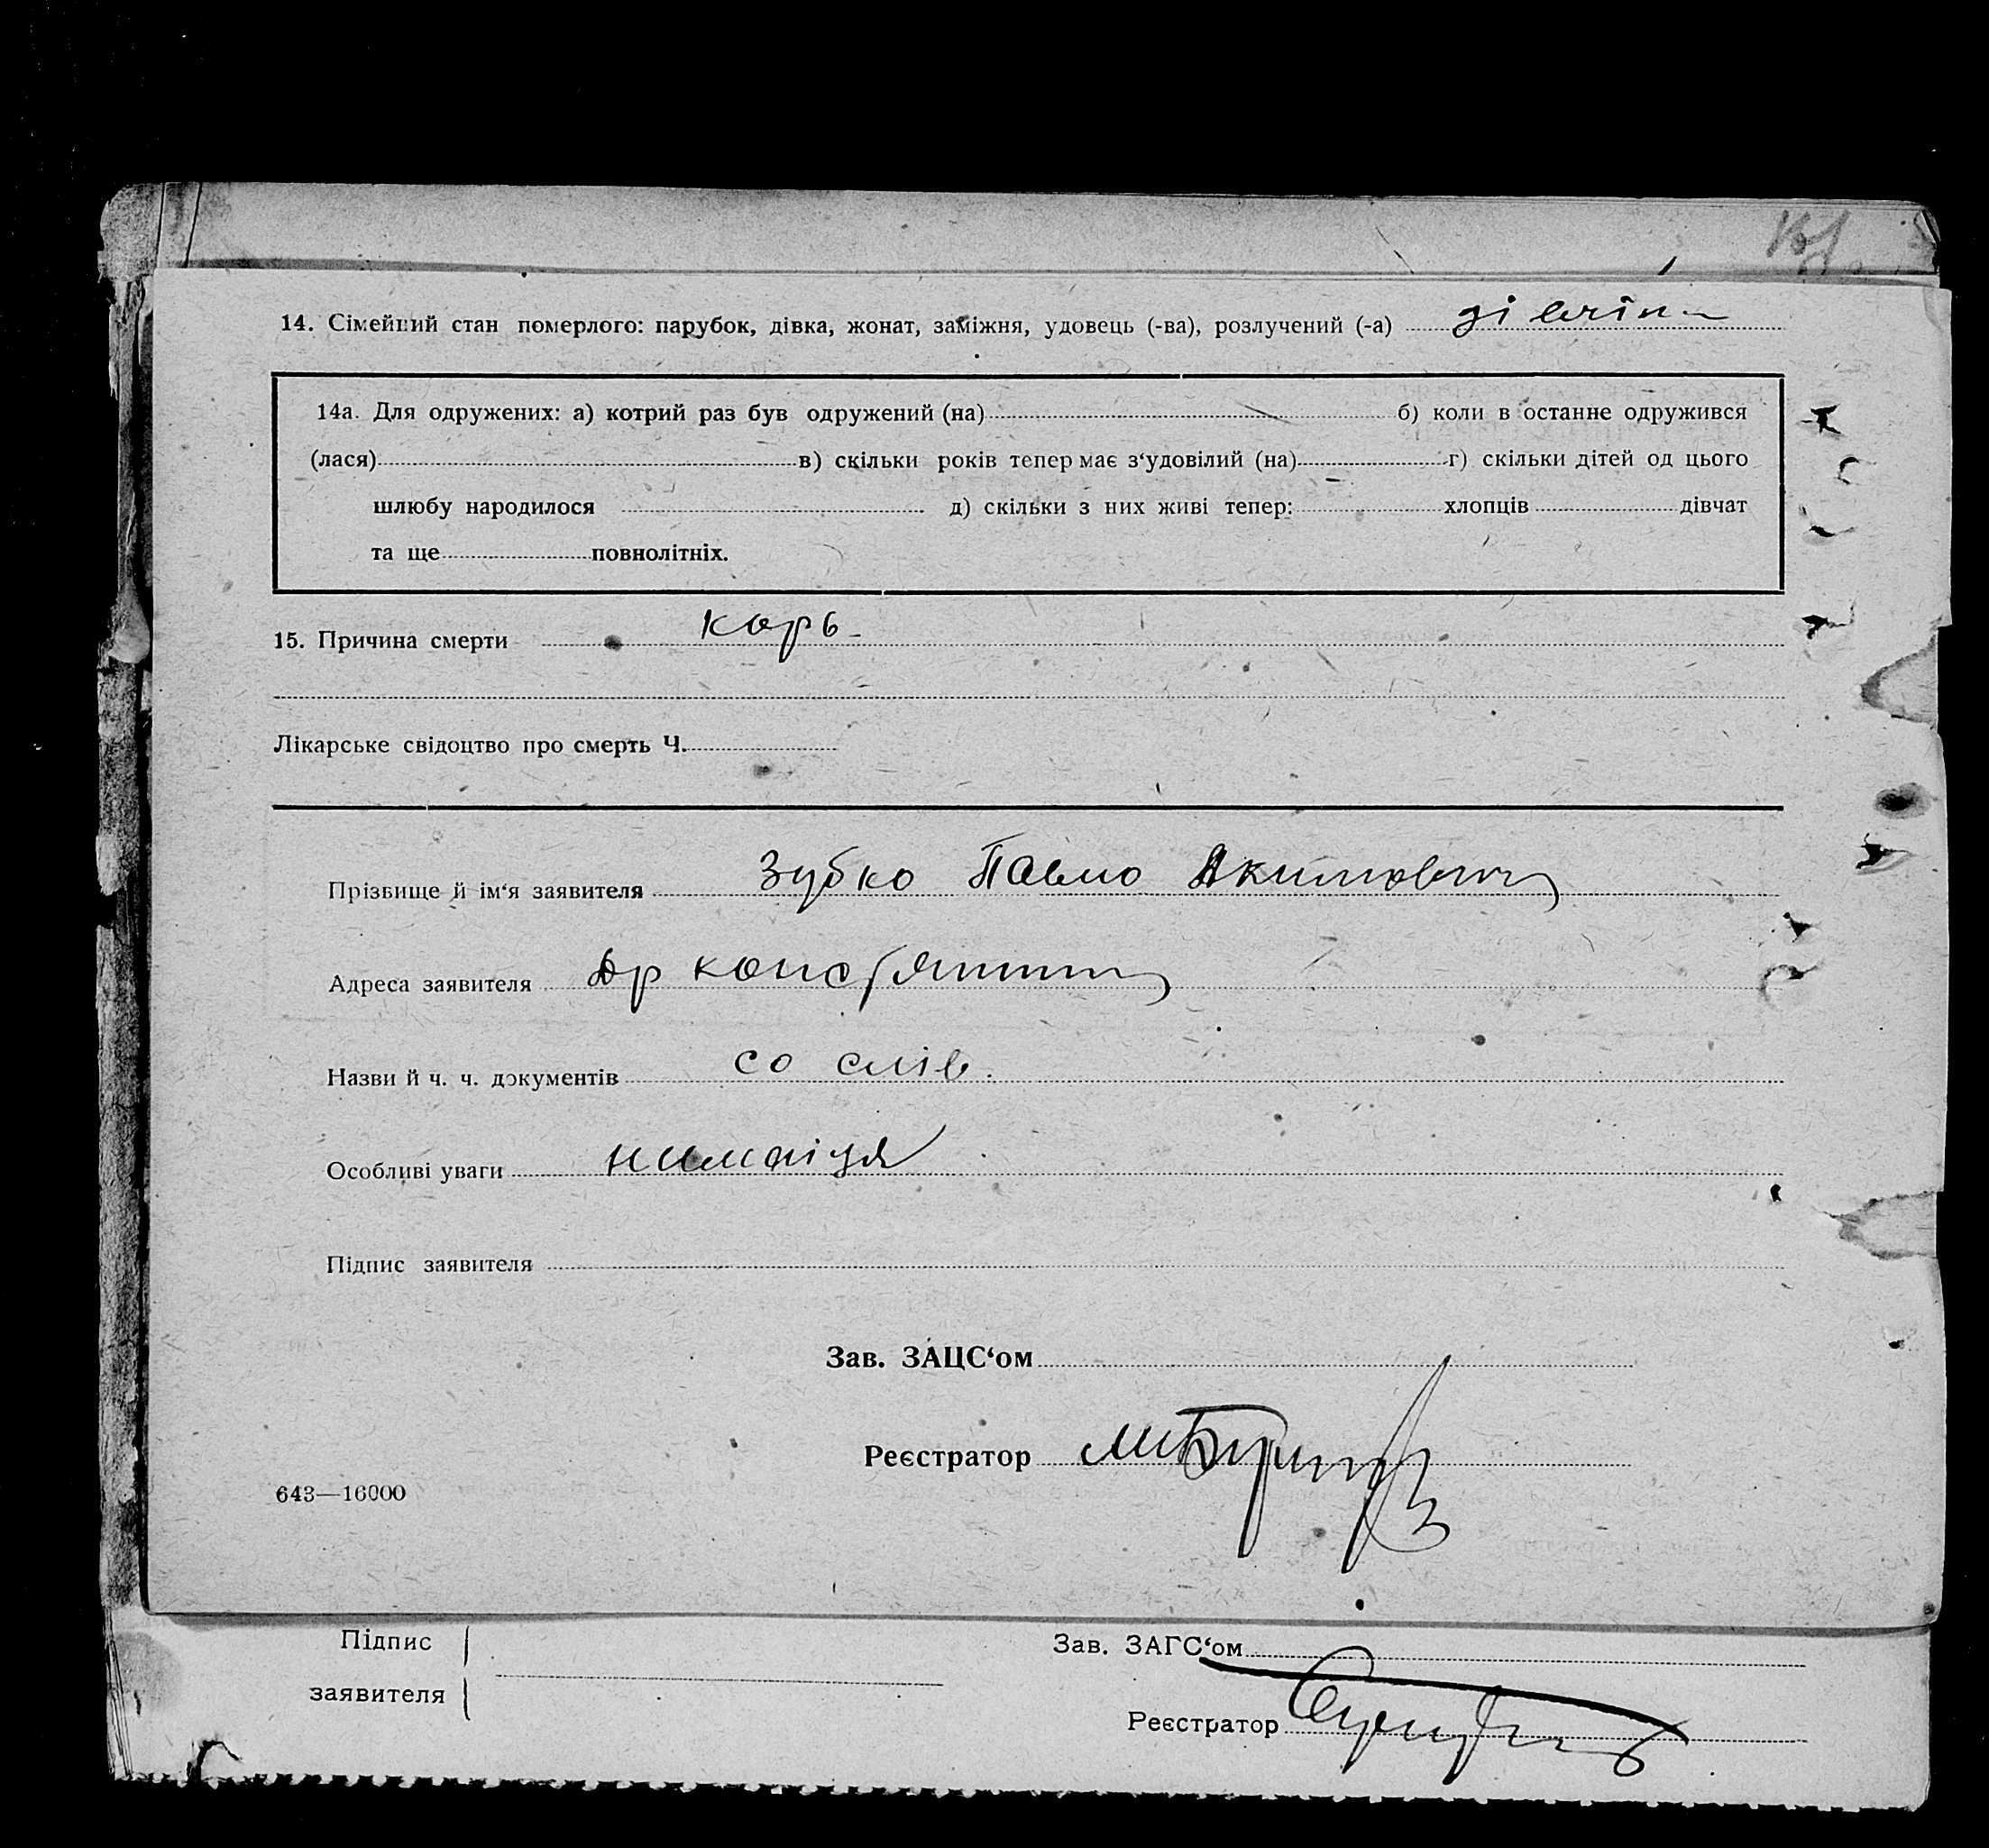 14. Сімейний стан померлого: парубок, дівка, жонат, заміжня, удовець (-ва), розлучений (-а) дівчіна
14а. Для одружених: а) котрий раз був одружений (на) б) коли в останнє одружився
(лася) в) скільки років тепер має з‘удовілий (на) г) скільки дітей од цього
шлюбу народилося д) скільки з них живі тепер: хлопців дівчат
та ще повнолітніх.
15. Причина смерти корь
Лікарське свідоцтво про смерть Ч.
Прізвище й ім‘я заявителя Зубко Павло Якимович
Адреса заявителя
Назви й ч. ч. документів со слів.
Особливі уваги
Підпис заявителя
Зав. ЗАЦС‘ом
Реєстратор
643—16000
Підпис Зав. ЗАГС‘ом
заявителя
Реєстратор